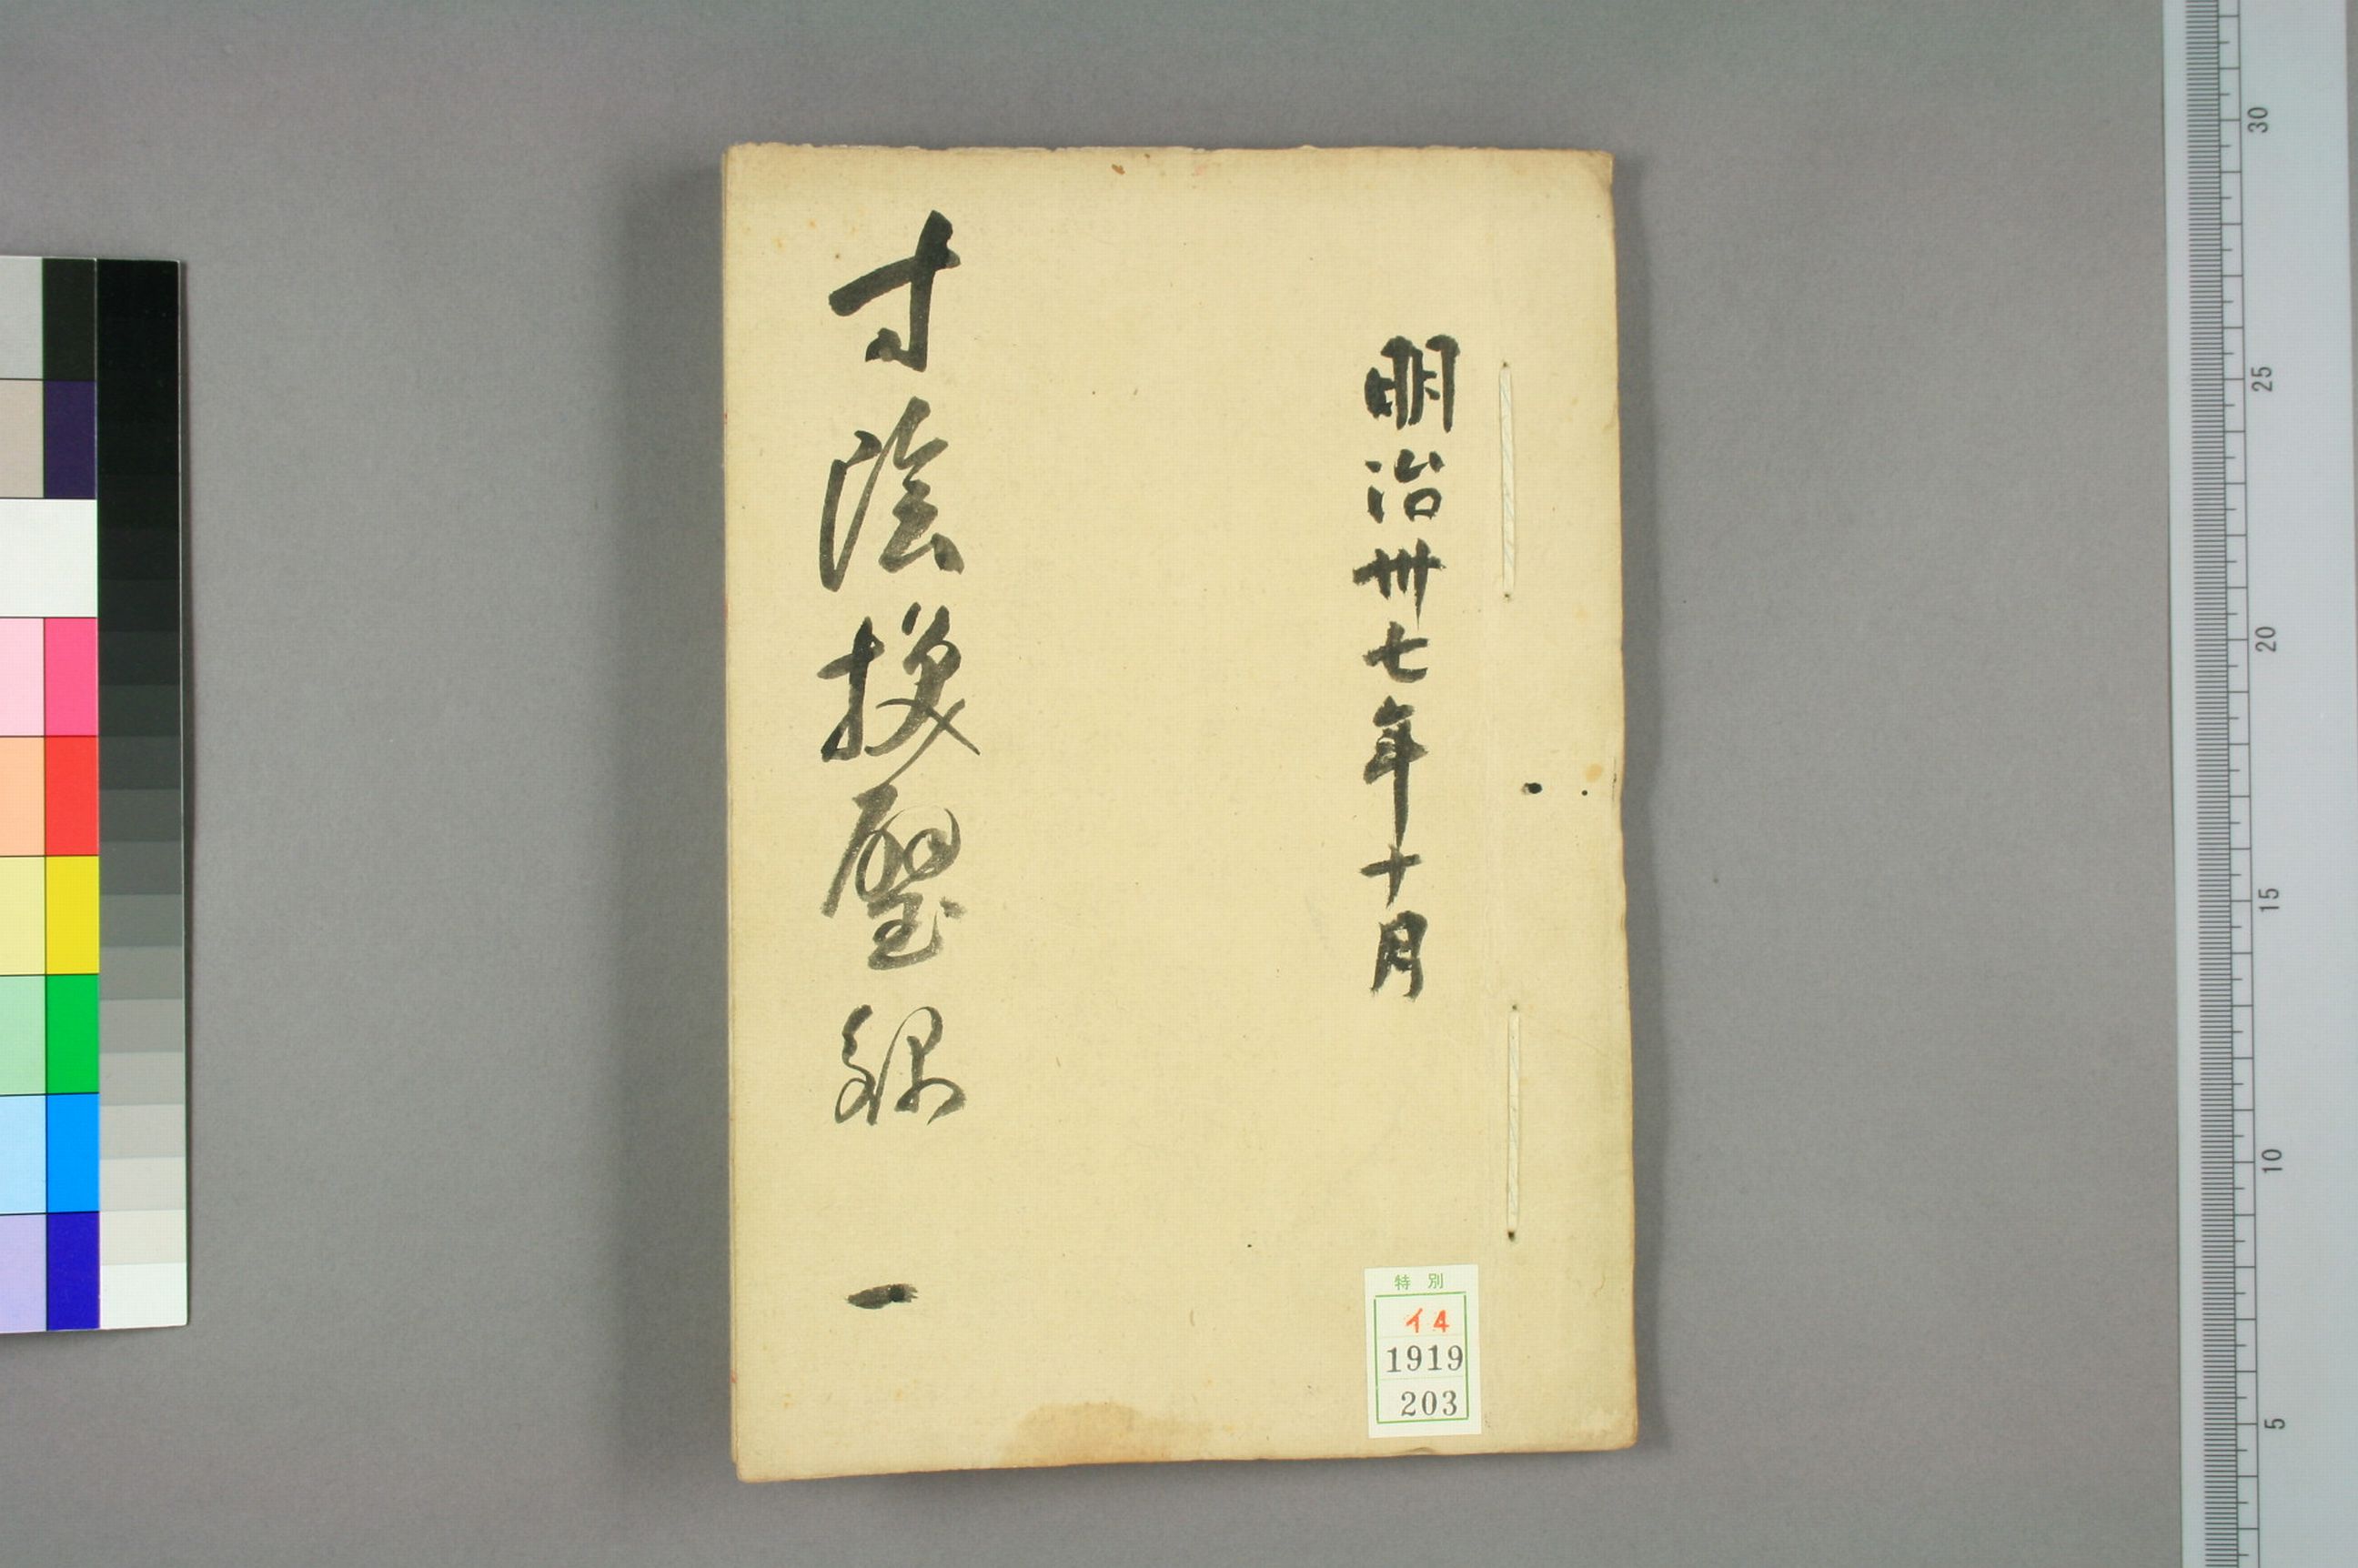 明治卅七年十月
寸陰換璧録 一
特別
イ4
1919
203
30
25
20
15
10
5